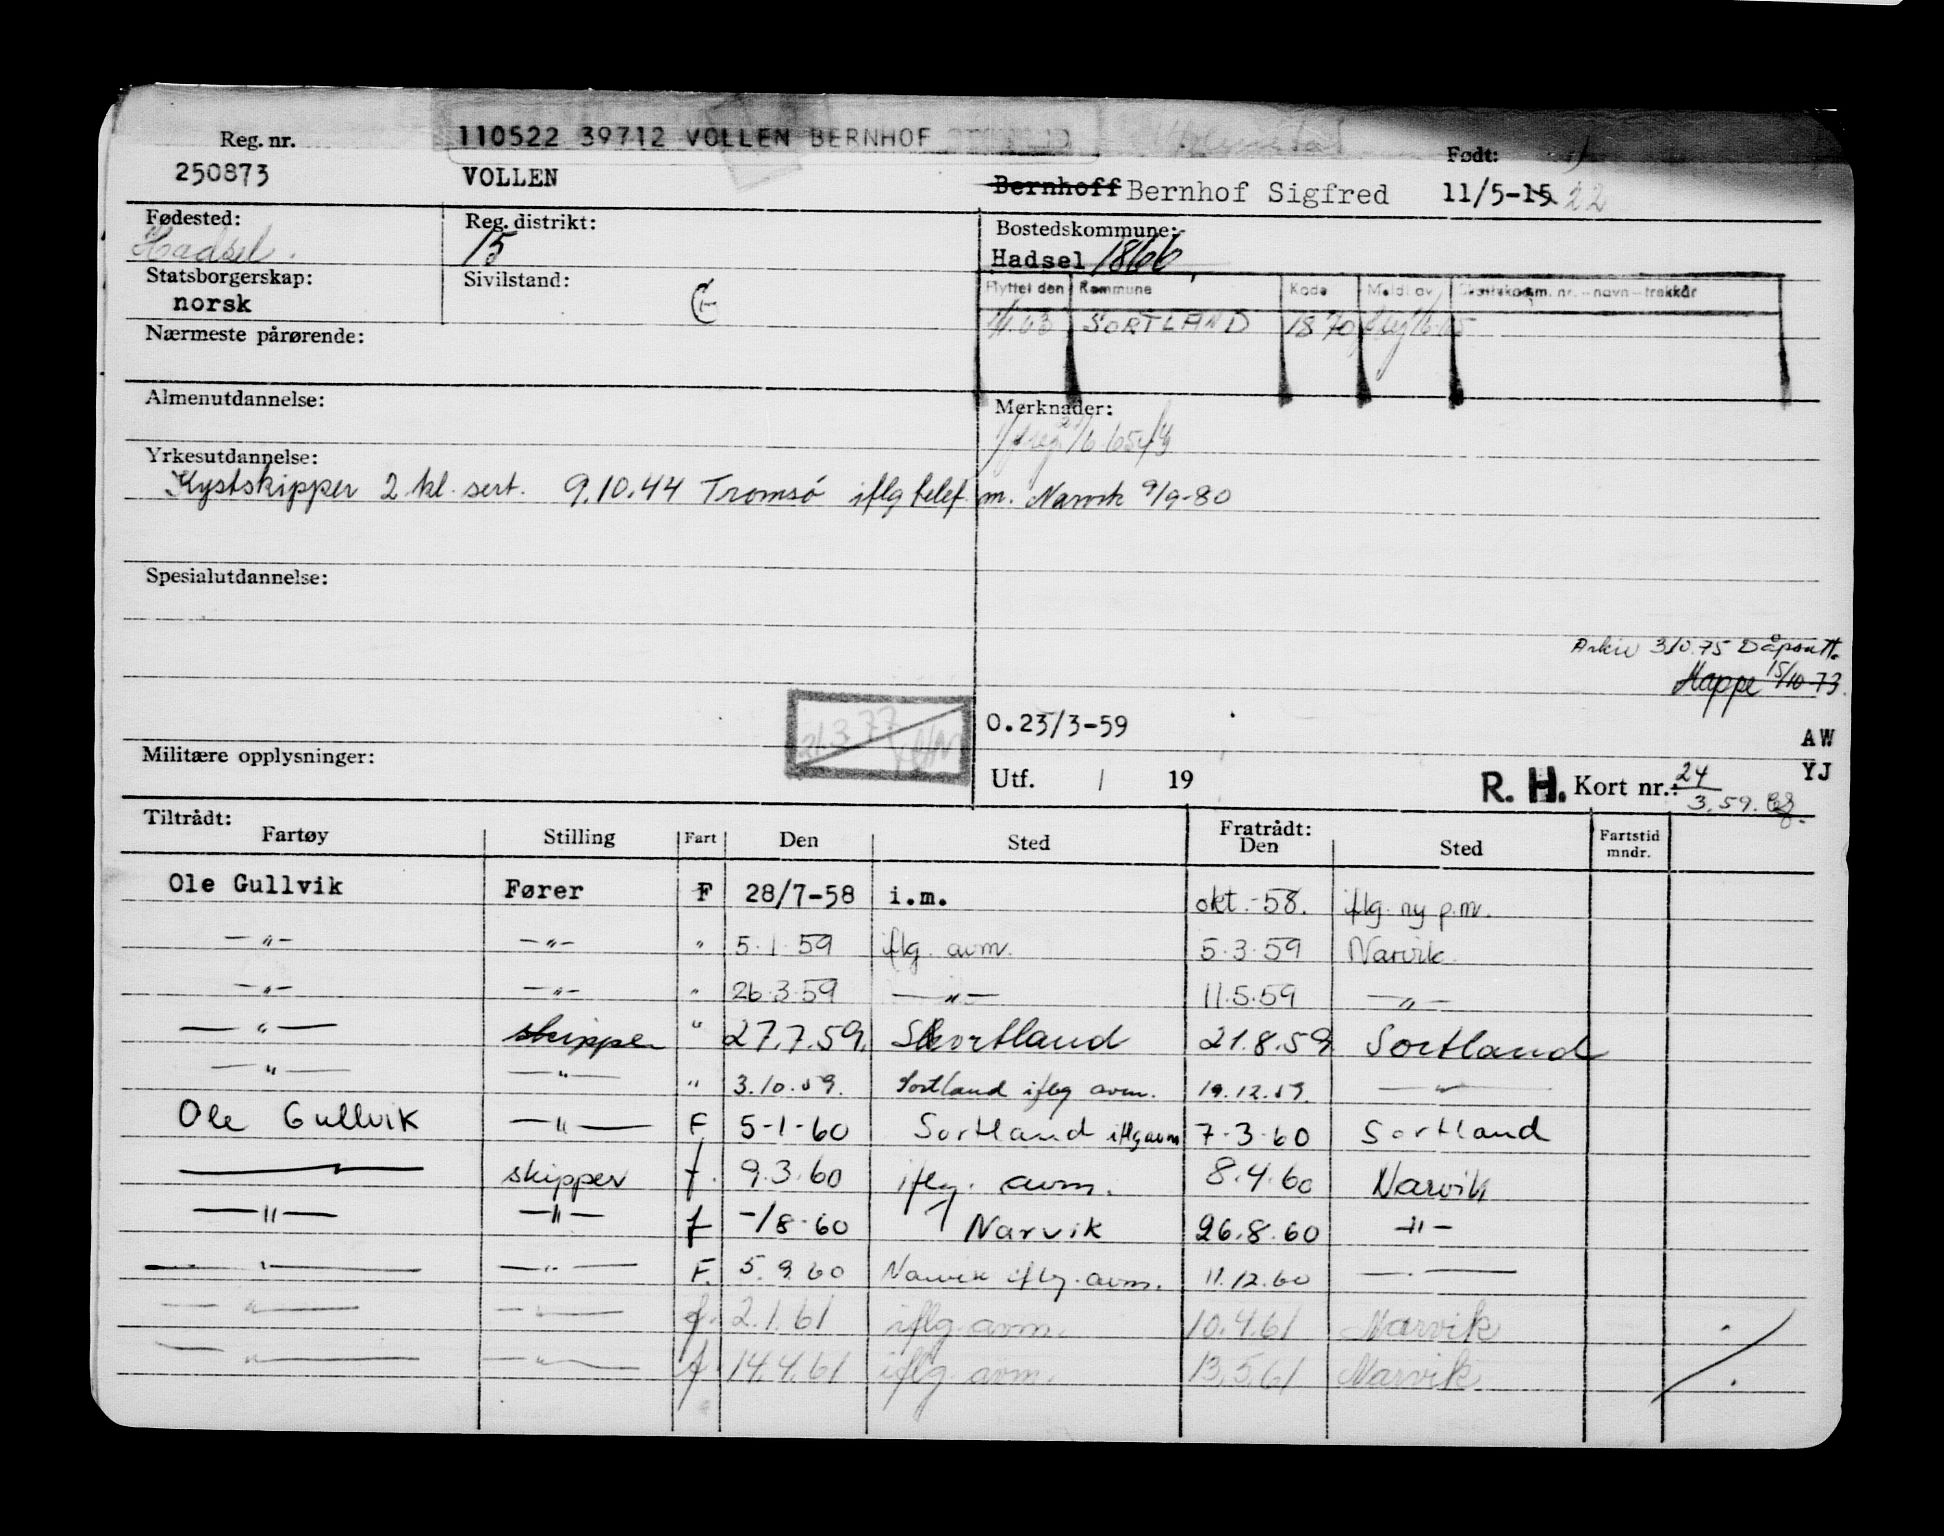 110522 39712 VOLLEN BERNHOF
Reg. nr. Født:
250873 VOLLEN Bernhoff Bernhof Sigfred 11/5-15 22
Fødested: Reg. distrikt: Bostedskommune:
Hadsel. 15 Hadsel 1866
Statsborgerskap: Sivilstand: Flyttet den Kommune Kode Meldt av Skattekomm. nr. - navn - trekkår
norsk SORTLAND 1870
Nærmeste pårørende:
Almenutdannelse: Merknader:
Yrkesutdannelse:
Kystskipper 2 kl. sert. 9.10.44 Tromsø iflg telef. m. Narvik 9/9-80
Spesialutdannelse:
Arkiv 3/10.75 Dåpsatt.
Mappe 15/10-73
O.23/3-59
AW
Militære opplysninger: Utf. / 19 R. H. Kort nr.: 24 YJ
3.59.
Tiltrådt: Fratrådt:
Fartøy Stilling Fart Den Sted Den Sted Fartstid mndr.
Ole Gullvik Fører F 28/7-58 i.m. okt.-58. iflg. ny p.m.
—"— —"— " 5.1.59 iflg. avm. 5.3.59 Narvik.
—"— —"— " 26.3.59 —"— 11.5.59 —"—
—"— skipper " 27.7.59. Skortland 21.8.59 Sortland
—"— —"— " 3.10.59. Sortland iflg avm. 19.12.59. —"—
Ole Gullvik —"— F 5-1-60 Sortland iflg avm 7-3-60 Sortland
——— skipper f. 9.3.60 iflg. avm. 8.4.60 Narvik
—"— —"— f -/8-60 Narvik 26.8.60 —"—
—"— —"— F. 5.9.60 Narvik iflg. avm. 11.12.60 —"—
—"— —"— f. 2.1.61 iflg. avm. 10.4.61 Narvik
—"— —"— f. 14.4.61 iflg. avm. 13.5.61 Narvik